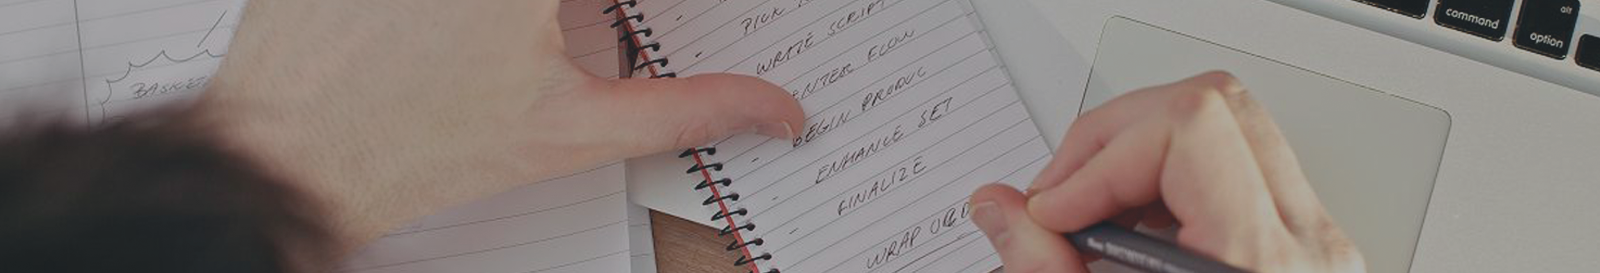 PICK
WRITE SCRIPT
ENTER FLOW
BEGIN PRODUC
ENHANCE SET
FINALIZE
WRAP
BASKET
command
alt
option